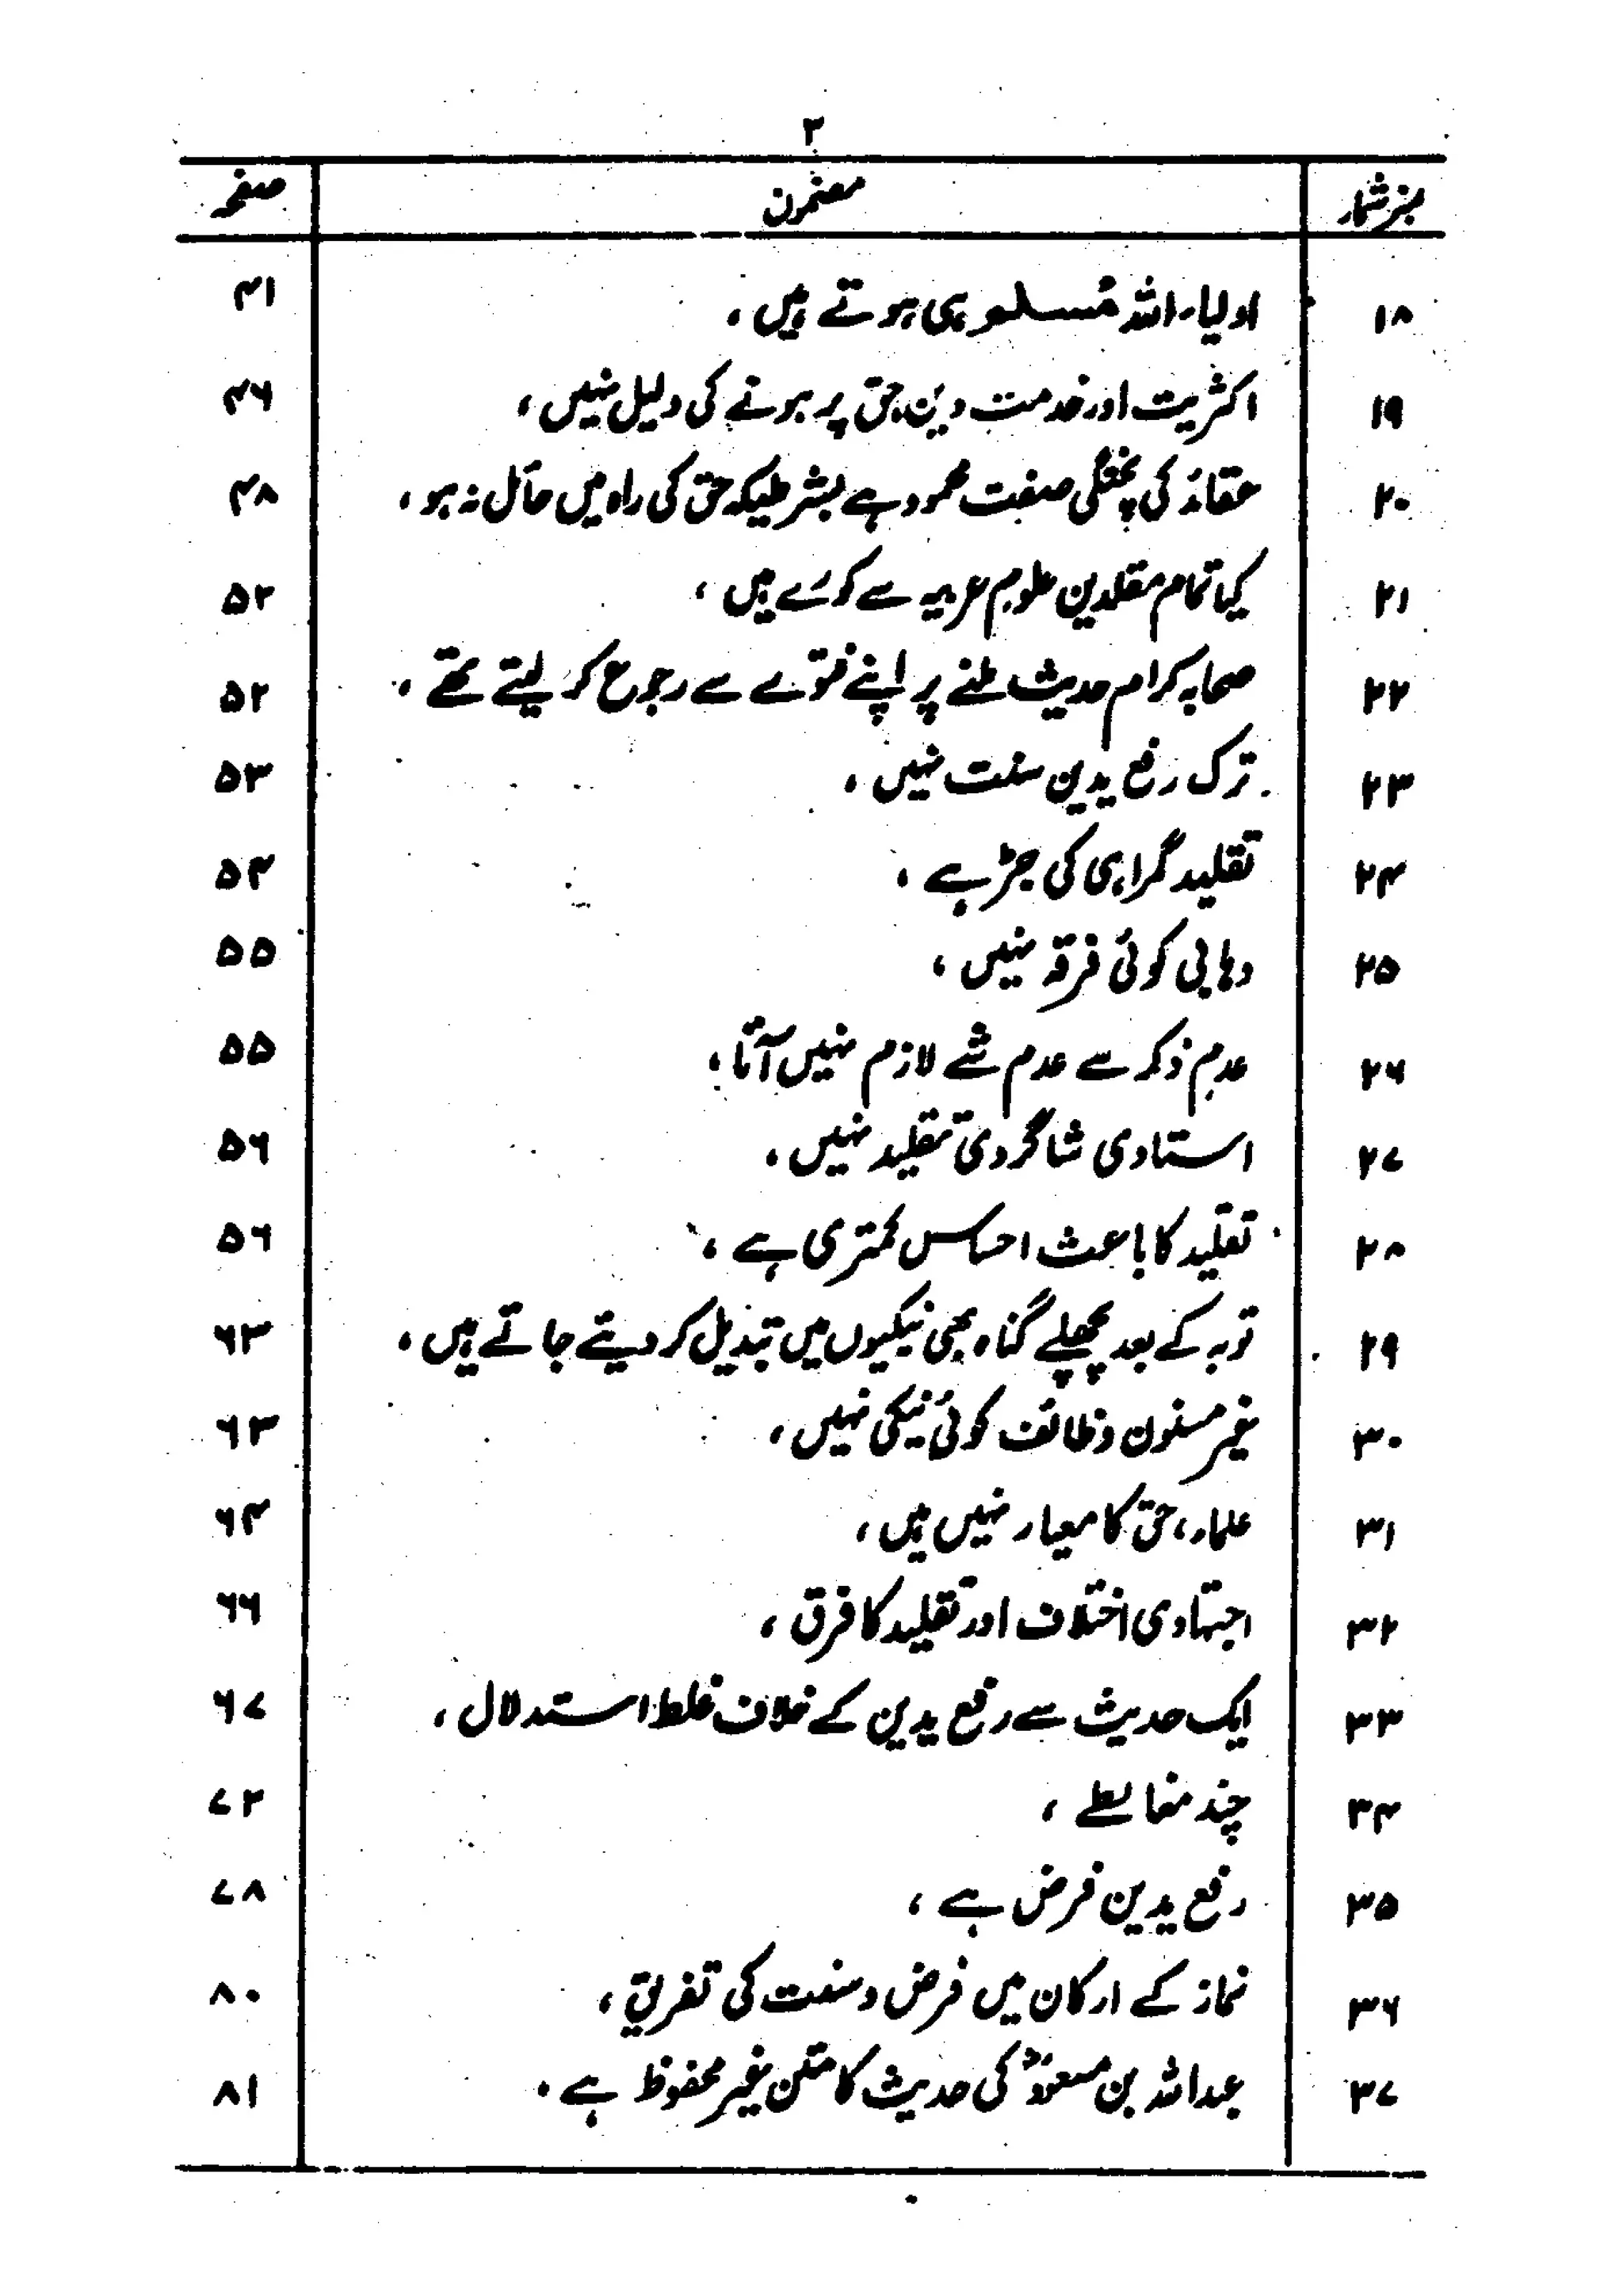 ۳
نمبرشمار مضمون صفحہ
۱۸ اولیاء اللہ مُسلم ہی ہوتے ہیں، ۴۱
۱۹ اکثریت اور خدمت دین، حق پر ہونے کی دلیل نہیں، ۴۶
۲۰ عقائد کی پختگی صفت محمود ہے بشرطیکہ حق کی راہ میں حائل نہ ہو، ۴۸
۲۱ کیا تمام مقلدین علوم عربیہ سے کورے ہیں، ۵۲
۲۲ صحابہ کرام حدیث ملنے پر اپنے فتوے سے رجوع کر لیتے تھے، ۵۲
۲۳ ترک رفع یدین سنت نہیں، ۵۳
۲۴ تقلید گمراہی کی جڑ ہے، ۵۴
۲۵ وہابی کوئی فرقہ نہیں، ۵۵
۲۶ عدم ذکر سے عدم شے لازم نہیں آتا، ۵۵
۲۷ استادی شاگردی تقلید نہیں، ۵۶
۲۸ تقلید کا باعث احساس کمتری ہے، ۵۶
۲۹ توبہ کے بعد پچھلے گناہ بھی نیکیوں میں تبدیل کر دیتے جاتے ہیں، ۶۳
۳۰ غیر مسنون وظائف کوئی نیکی نہیں، ۶۳
۳۱ علماء، حق کا معیار نہیں ہیں، ۶۴
۳۲ اجتہادی اختلاف اور تقلید کا فرق، ۶۶
۳۳ ایک حدیث سے رفع یدین کے خلاف غلط استدلال، ۶۷
۳۴ چند مغالطے، ۷۲
۳۵ رفع یدین فرض ہے، ۷۸
۳۶ نماز کے ارکان میں فرض و سنت کی تفریق، ۸۰
۳۷ عبداللہ بن مسعودؓ کی حدیث کا متن غیر محفوظ ہے۔ ۸۱